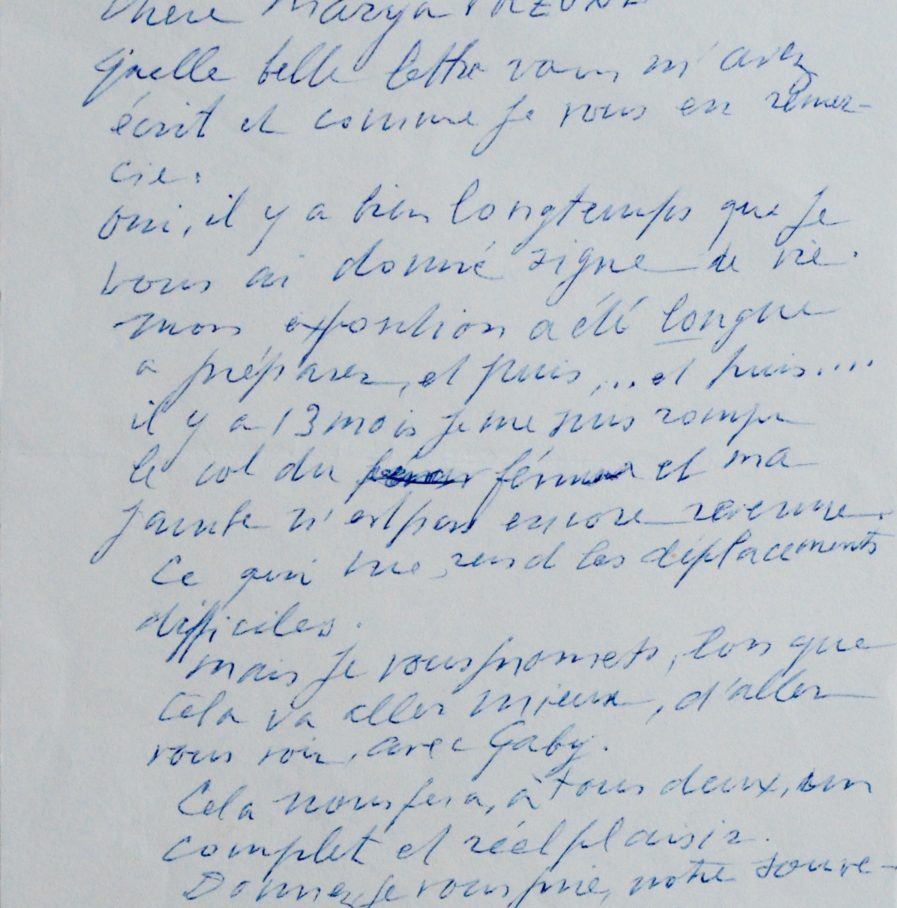 Chère Marya
Quelle belle lettre vous m'avez
écrit et comme je vous en remer-
cie.
Oui, il y a bien longtemps que je
vous ai donné signe de vie.
Mon exposition a été longue
a préparer, et puis... et puis....
il y a 13 mois je me suis rompu
le col du fémur et ma
jambe n'est pas encore revenue.
Ce qui me rend les déplacements
difficiles.
Mais je vous promets, lorsque
cela va aller mieux, d'aller
vous voir, avec Gaby.
Cela nous fera, à tous deux, un
complet et réel plaisir.
Donnez, je vous prie, notre souve-